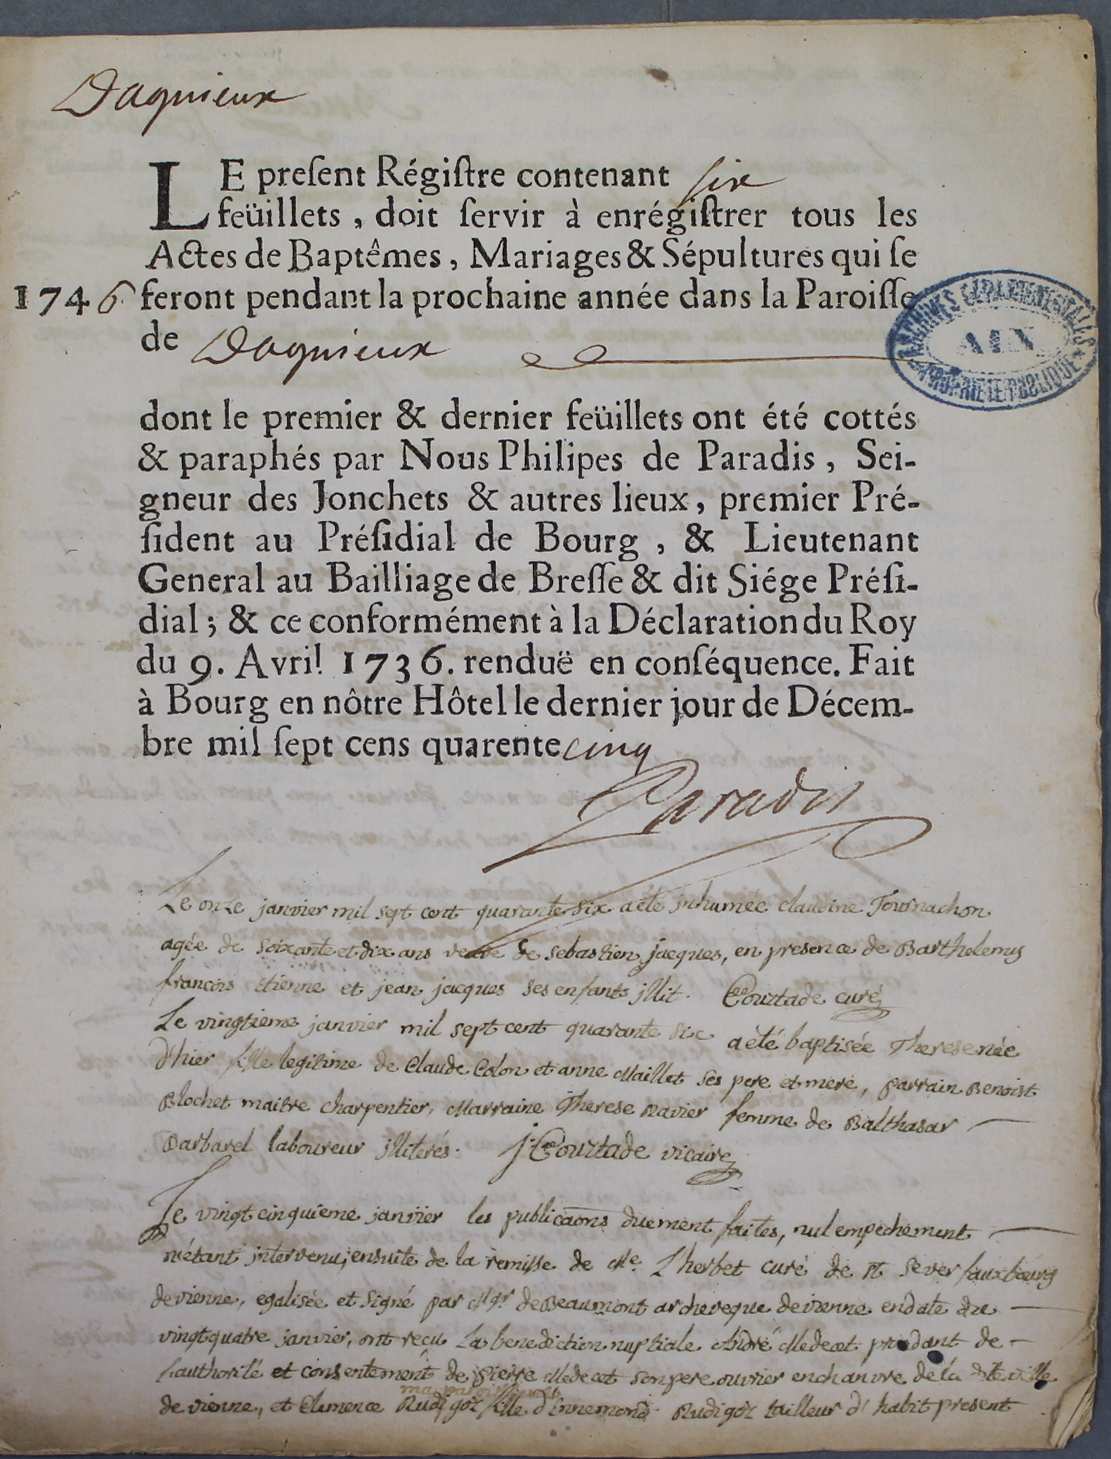 Dagnieux
LE preſent Régiſtre contenant six
feüillets, doit ſervir à enrégiſtrer tous les
Actes de Baptêmes, Mariages & Sépultures qui ſe
1746 feront pendant la prochaine année dans la Paroiſſe
de Dagnieux
ARCHIVES DÉPARTEMENTALES
AIN
PROPRIÉTÉ PUBLIQUE
dont le premier & dernier feüillets ont été cottés
& paraphés par Nous Philipes de Paradis, Sei-
gneur des Jonchets & autres lieux, premier Pré-
ſident au Préſidial de Bourg, & Lieutenant
General au Bailliage de Breſſe & dit Siége Préſi-
dial; & ce conformément à la Déclaration du Roy
du 9. Avril 1736. renduë en conſéquence. Fait
à Bourg en nôtre Hôtel le dernier jour de Décem-
bre mil ſept cens quarente cinq
Paradis
Le onze janvier mil sept cent quarante six a été inhumée claudine Tournachon
agée de soixante et dix ans veuve de sebastien jacques, en presence de Barthelemy
francois etienne et jean jacques ses enfants illit. Courtade curé
Le vingtieme janvier mil sept cent quarante six a été baptisée Therese née
d'hier fille legitime de Claude Colon et anne Maillet ses pere et mere, parrain Benoist
Blochet maitre charpentier, Marraine Therese navier femme de Balthasar
Barbarel laboureur illiterés. j Courtade vicaire
Le vingt cinquieme janvier les publicaons duement faites, nul empechement
n'étant intervenu, ensuite de la remisse de Mre. Lherbet curé de st sever fauxbourg
de vienne, egalisée et signé par Mgr de Beaumont archeveque de vienne en date du
vingt quatre janvier, ont recu La benediction nuptiale André Medecet procedant de
l'authorité et consentement de pierre Medecet son pere ouvrier en chanvre de la dite ville
de vienne, et Clemence Rudigoz fille d'Ennemond Rudigoz tailleur d'habit present